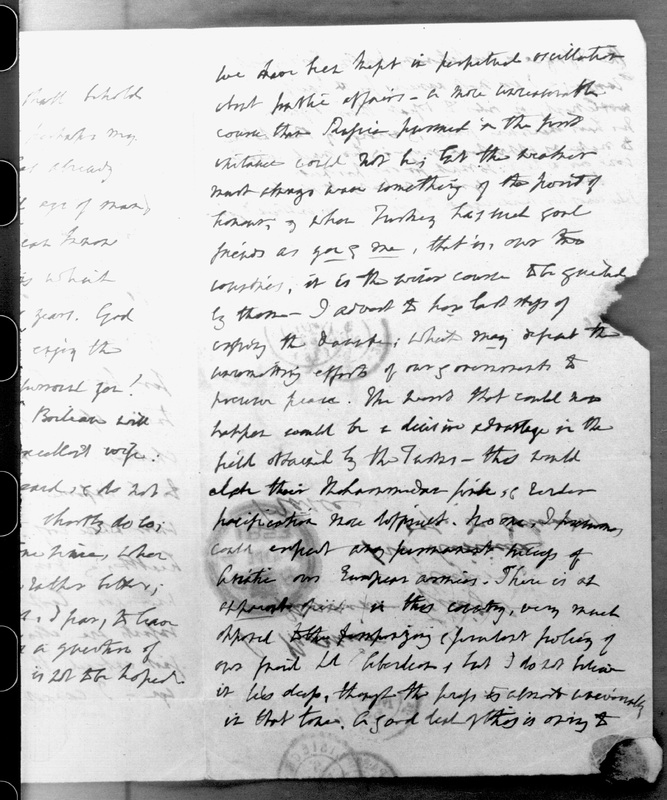 shall behold
perhaps may
already
age of man,
can know
is what
years. God
enjoy the
surround you!
Boileau will
excellent wife:
and do not
shortly do so;
time, when
rather better,;
I fear, to have
a question of
is not to be hoped
We have been kept in perpetual oscillation
about public affairs – a more unreasonable
course than Russia pursued in the first
instance could not be; but the weaker
must always have something of the point of
honour, & when Turkey has such good
friends as you & me, that is, our two
countries, it is the wiser course to be guided
by them – I advert to last steps of
the ; which may defeat the
unremitting efforts of our governments to
procure peace. The worst that could now
happen would be a decisive advantage in the
field obtained by the Turks – this would
elate their Mahommedan pride, & render
pacification more difficult. No one, I presume,
could expect any permanent success of
Asiatic over European armies. There is at
in this country, very much
opposed to the temporizing & prudent policy of
our friend Ld Aberdeen, but I do not believe
it lies deep, though the press is almost universally
in that tone. A good deal of this is owing to